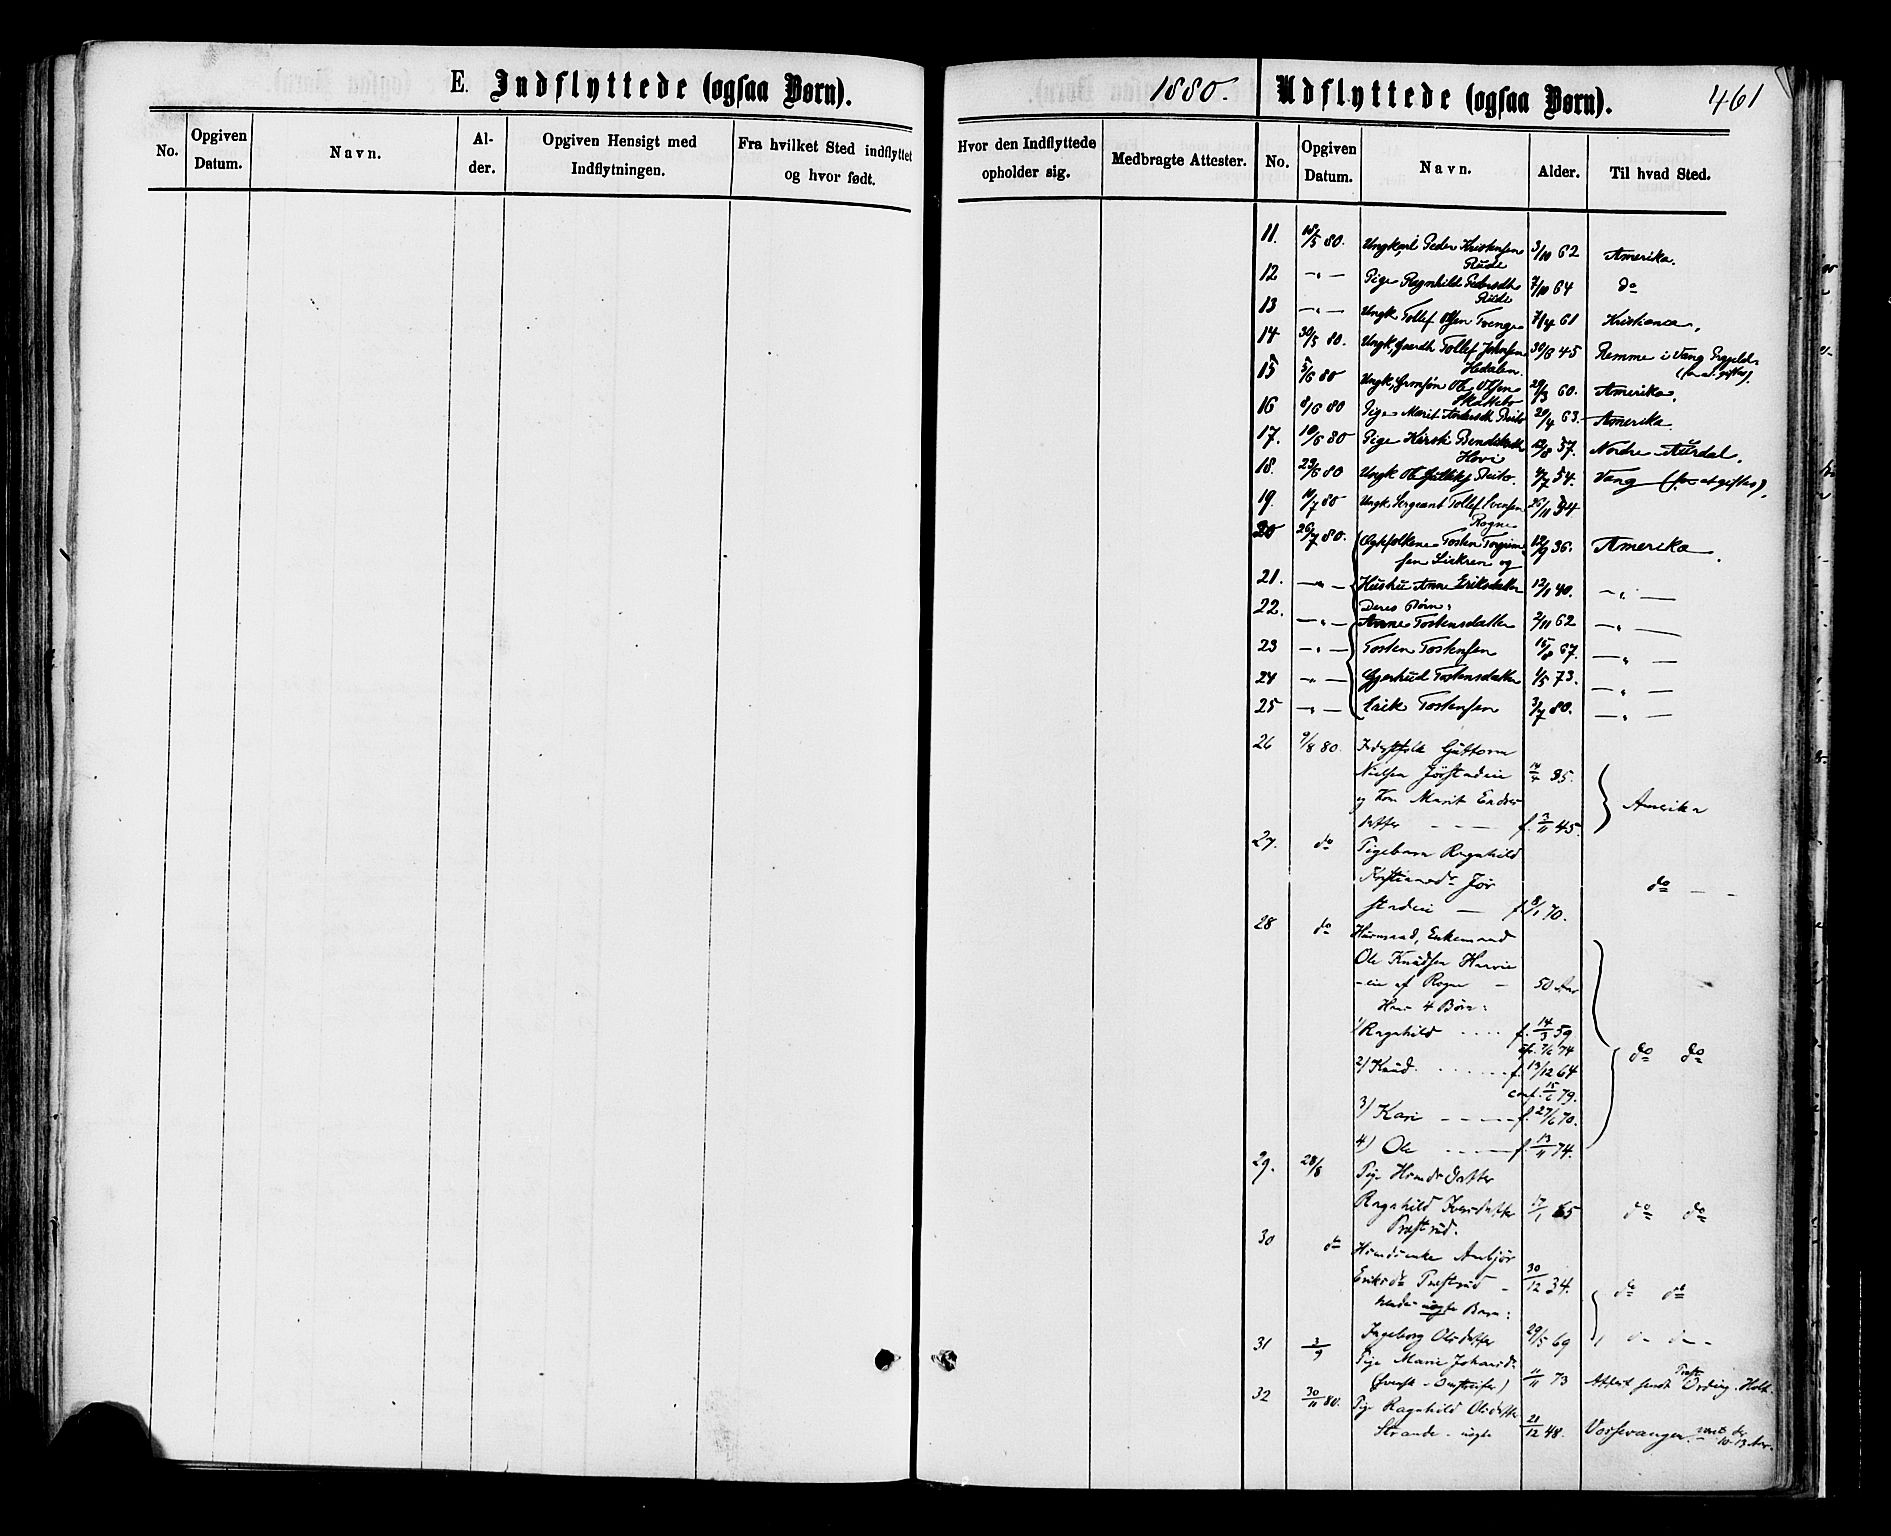 E. Indflyttede (ogsaa Børn).
1880.
Udflyttede (ogsaa Børn).
461
No.
Opgiven Datum.
Navn.
Al-
der.
Opgiven Hensigt med
Indflytningen.
Fra hvilket Sted indflyttet
og hvor født.
Hvor den Indflyttede
opholder sig.
Medbragte Attester.
No.
Opgiven Datum.
Navn.
Alder.
Til hvad Sted.
11. 18/5 80. Ungkarl Peder Kristensen 3/10 62 Amerika.
Rude
12 —„— Pige Ragnhild Pedersdtr 7/10 64 do
Rude
13 —„— Ungk. Tollef Olsen Tvenge 7/4 61 Kristiania.
14 30/5 80. Ungk. Tollef Johnsen 30/8 45 Remme i Vang
Hedalen. (for at giftes).
15 5/6 80 Ungk. Ole Olsen 29/3 60. Amerika.
Skattebo
16 8/6 80 Pige Marit 20/4 63. Amerika.
17. 10/6 80 Pige 12/8 57. Nordre Aurdal.
Hovi
18. 29/6 80 Ungk Ole 4/7 54. Vang (for at giftes).
19. 11/7 80 Ungk. Sergeant Tollef Svensen 25/11 54
Rogne
20 26/7 80. Ægtefolkene Tosten 12/9 36. Amerika.
sen og
21. —„— Hustru Anne Eriksdatter 12/1 40. —„—
22. Deres Børn:
—„— Anne Tostensdatter 2/11 62 —„—
23 —„— Tosten Tostensen 15/8 67. —„—
24 —„— Gjertrud Tostensdatter 1/5 73. —„—
25 —„— Erik Tostensen 3/7 80. —„—
26 9/8 80. Guttorm
Nielsen Jørstadeie 14/4 35.
og Kone Marit Endres Amerika
datter — — f. 2/11 45.
27. do Pigebarn Ragnhild
Kristiansdr Jør do — —
stadeie — f. 8/1 70.
28 do Huusmand, Enkemand
Ole Knudsen
eie af Rogne — 50 Aar
Hans 4 Børn:
1) Ragnhild f. 14/3 59
7/6 74 do do
2) Knud f. 13/12 64
conf. 15/6 79.
3) Kari f. 27/6 70.
4) Ole f. 13/11 74.
29. 28/8 Pige
Ragnhild Iversdatter 17/1 65 do do
Præstrud.
30 do Anbjør
Eriksdr Præstrud — 30/12 34. do do
hendes uægte Barn:
Ingeborg Olsdatter 29/5 69
31 3/9 Pige Marie Johansdr
11/11 73 Attest sendt Ording. Holt
32 30/11 80. Pige Ragnhild Olsdatter
Strande. uægte 20/12 48. Vossevangen.